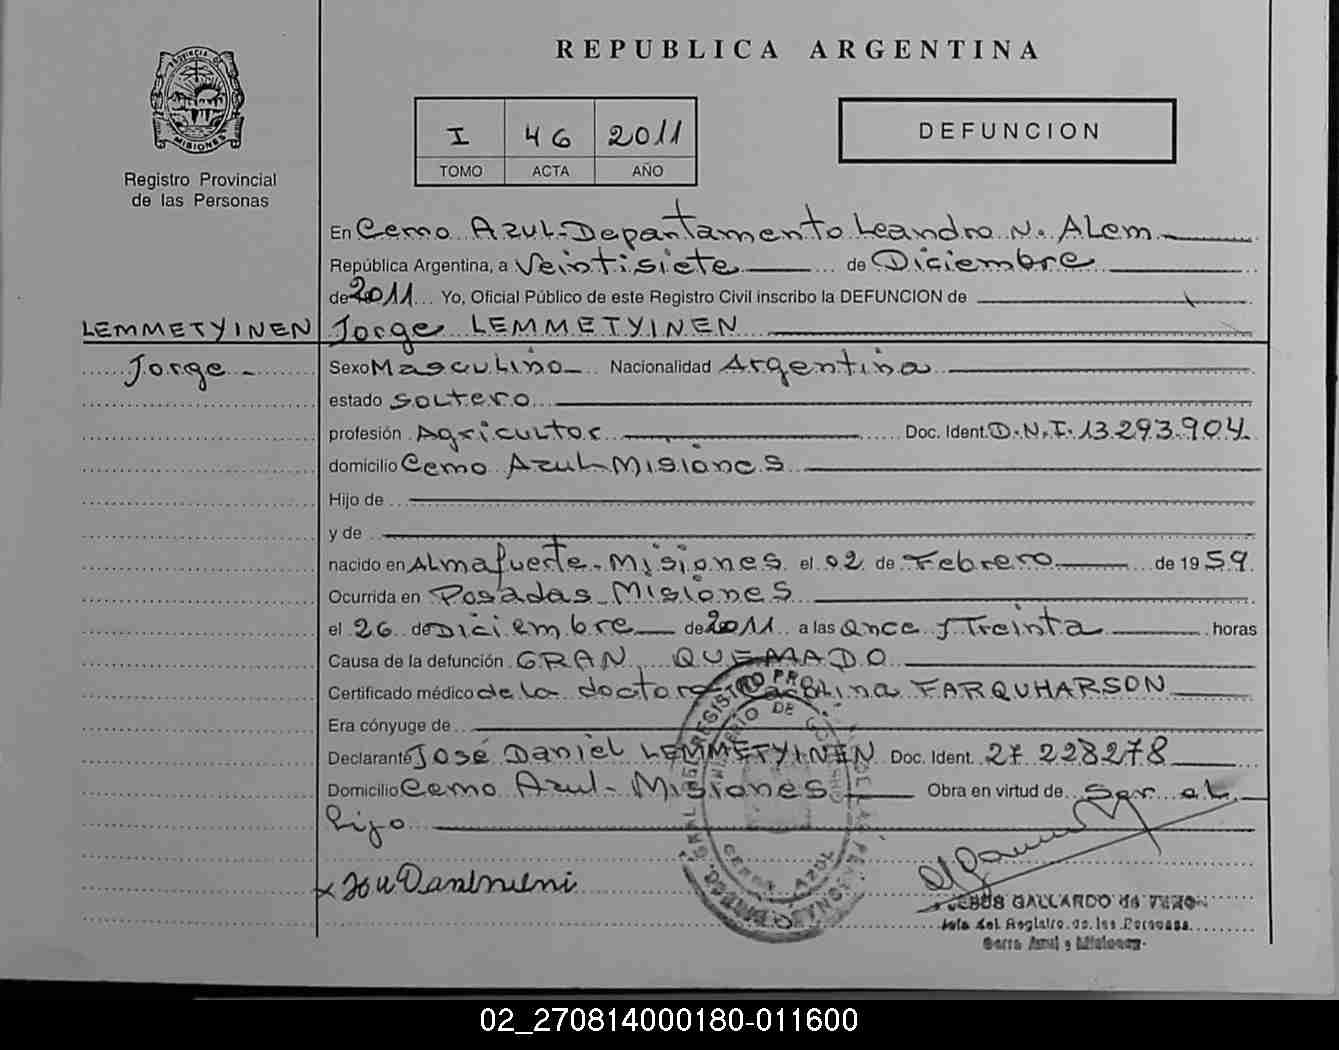 REPUBLICA ARGENTINA
PROVINCIA DE MISIONES
Registro Provincial
de las Personas
I 46 2011
TOMO ACTA AÑO
DEFUNCION
En Cerro Azul-Departamento Leandro N. ALem
República Argentina, a Veintisiete de Diciembre
de 2011 Yo, Oficial Público de este Registro Civil inscribo la DEFUNCION de
LEMMETYINEN Jorge LEMMETYINEN
Jorge - Sexo Masculino Nacionalidad Argentina
estado Soltero
profesión Agricultor Doc. Ident. D.N.I. 13.293.904
domicilio Cerro Azul-Misiones
Hijo de
y de
nacido en ALmafuerte-Misiones el 02 de Febrero de 1959
Ocurrida en Posadas-Misiones
el 26 de Diciembre de 2011 a las once y Treinta horas
Causa de la defunción GRAN QUEMADO
Certificado médico de La doctora Carolina FARQUHARSON
Era cónyuge de
Declarante José Daniel LEMMETYINEN Doc. Ident. 27.228278
Domicilio Cerro Azul-Misiones Obra en virtud de Ser el
hijo
x
CERRO AZUL
JESUS GALLARDO de
Jefe del Registro de las Personas
Cerro Azul, Misiones
02_270814000180-011600